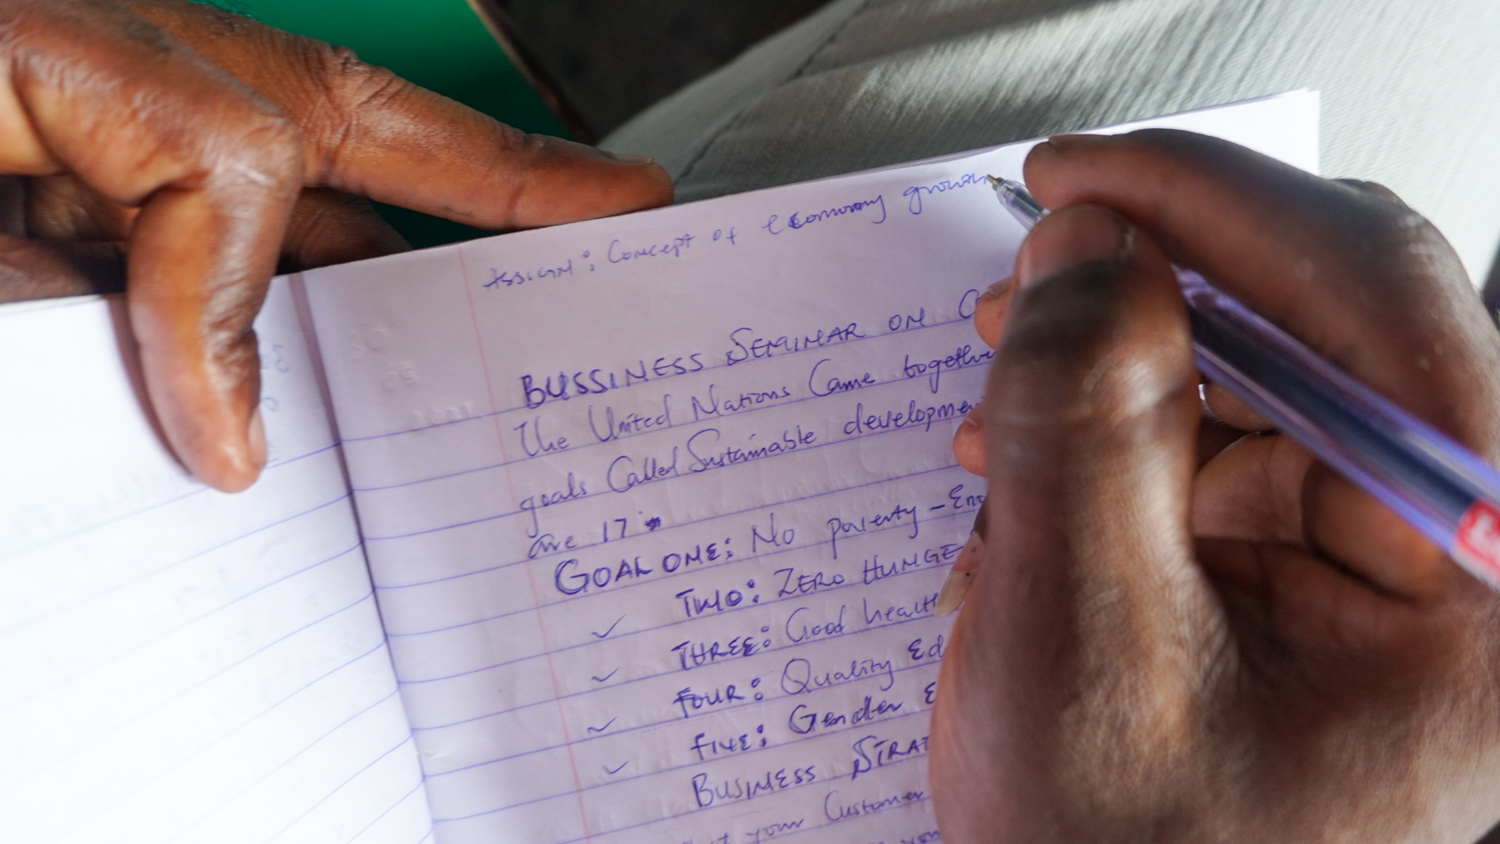 Assign: Concept of economy growth
BUSSINESS SEMINAR ON
The United Nations Came together
goals Called Sustainable developmen
are 17
GOAL ONE: No poverty - En
TWO: ZERO HUNGE
THREE: Good health
FOUR: Quality Ed
FIVE: Gender E
BUSINESS STRAT
your Customer